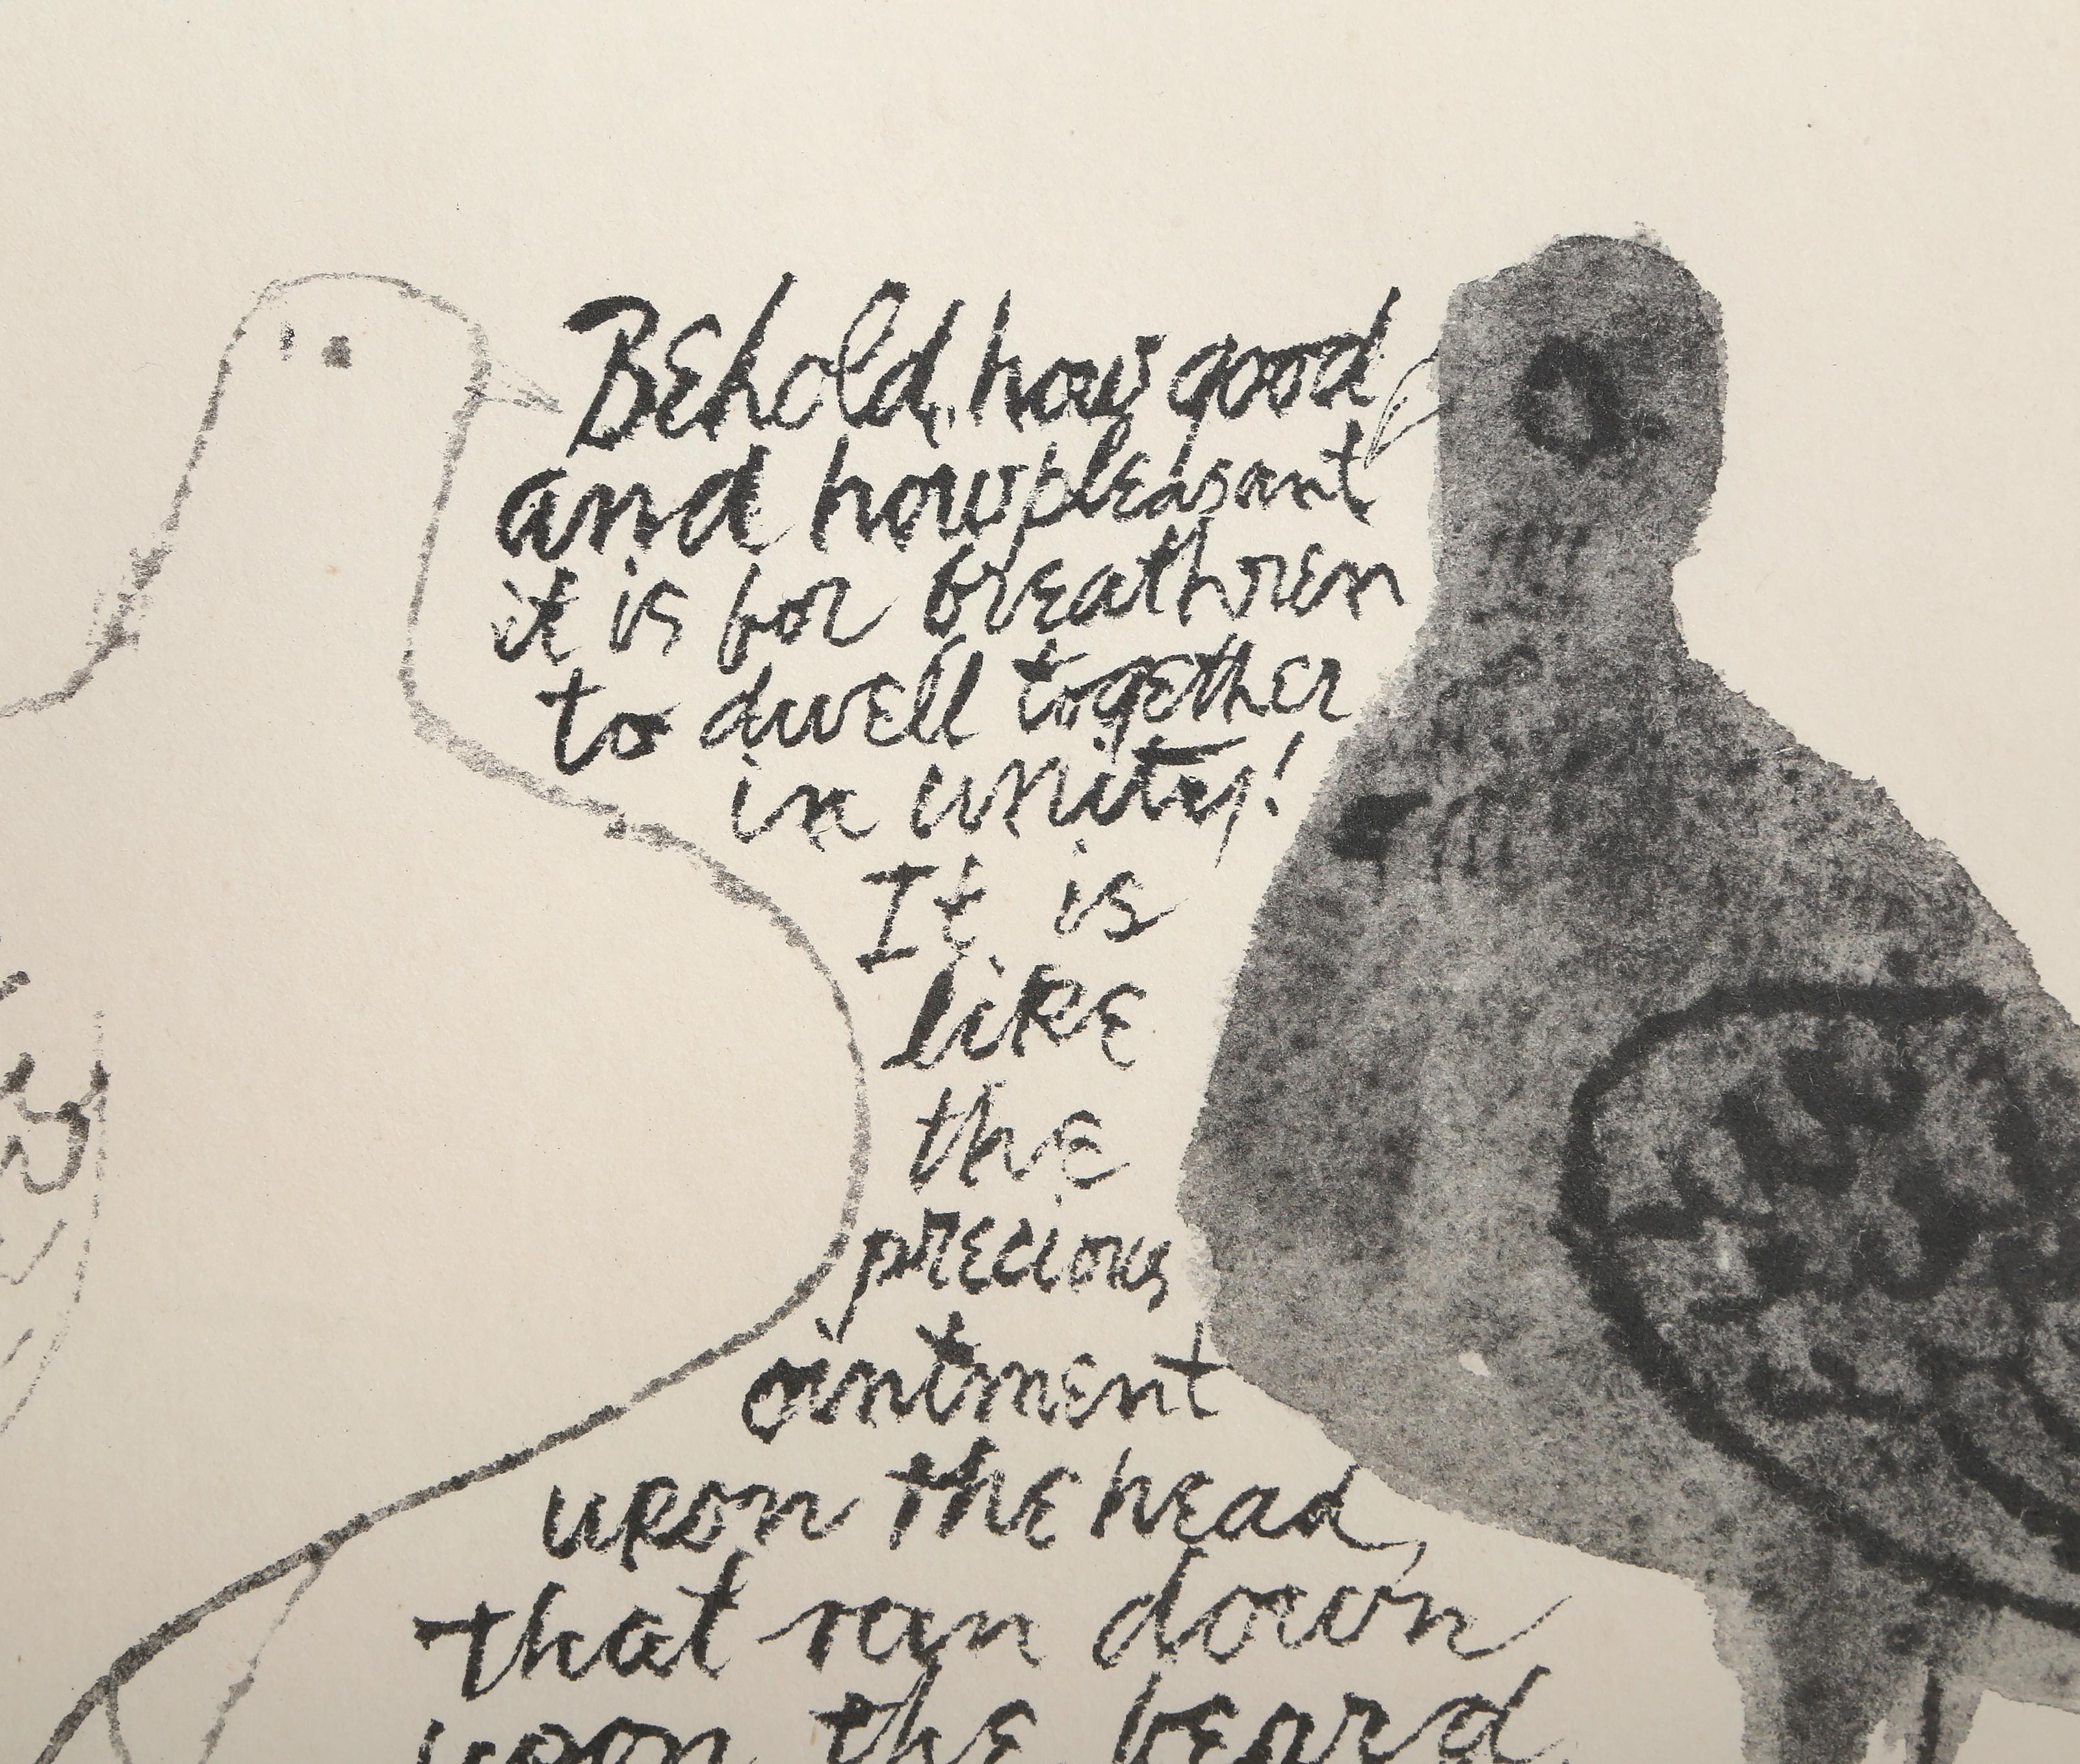 Behold, how good
and how pleasant
it is for breathren
to dwell together
in unity!
It is
like
the
precious
ointment
upon the head,
that ran down
upon the beard,